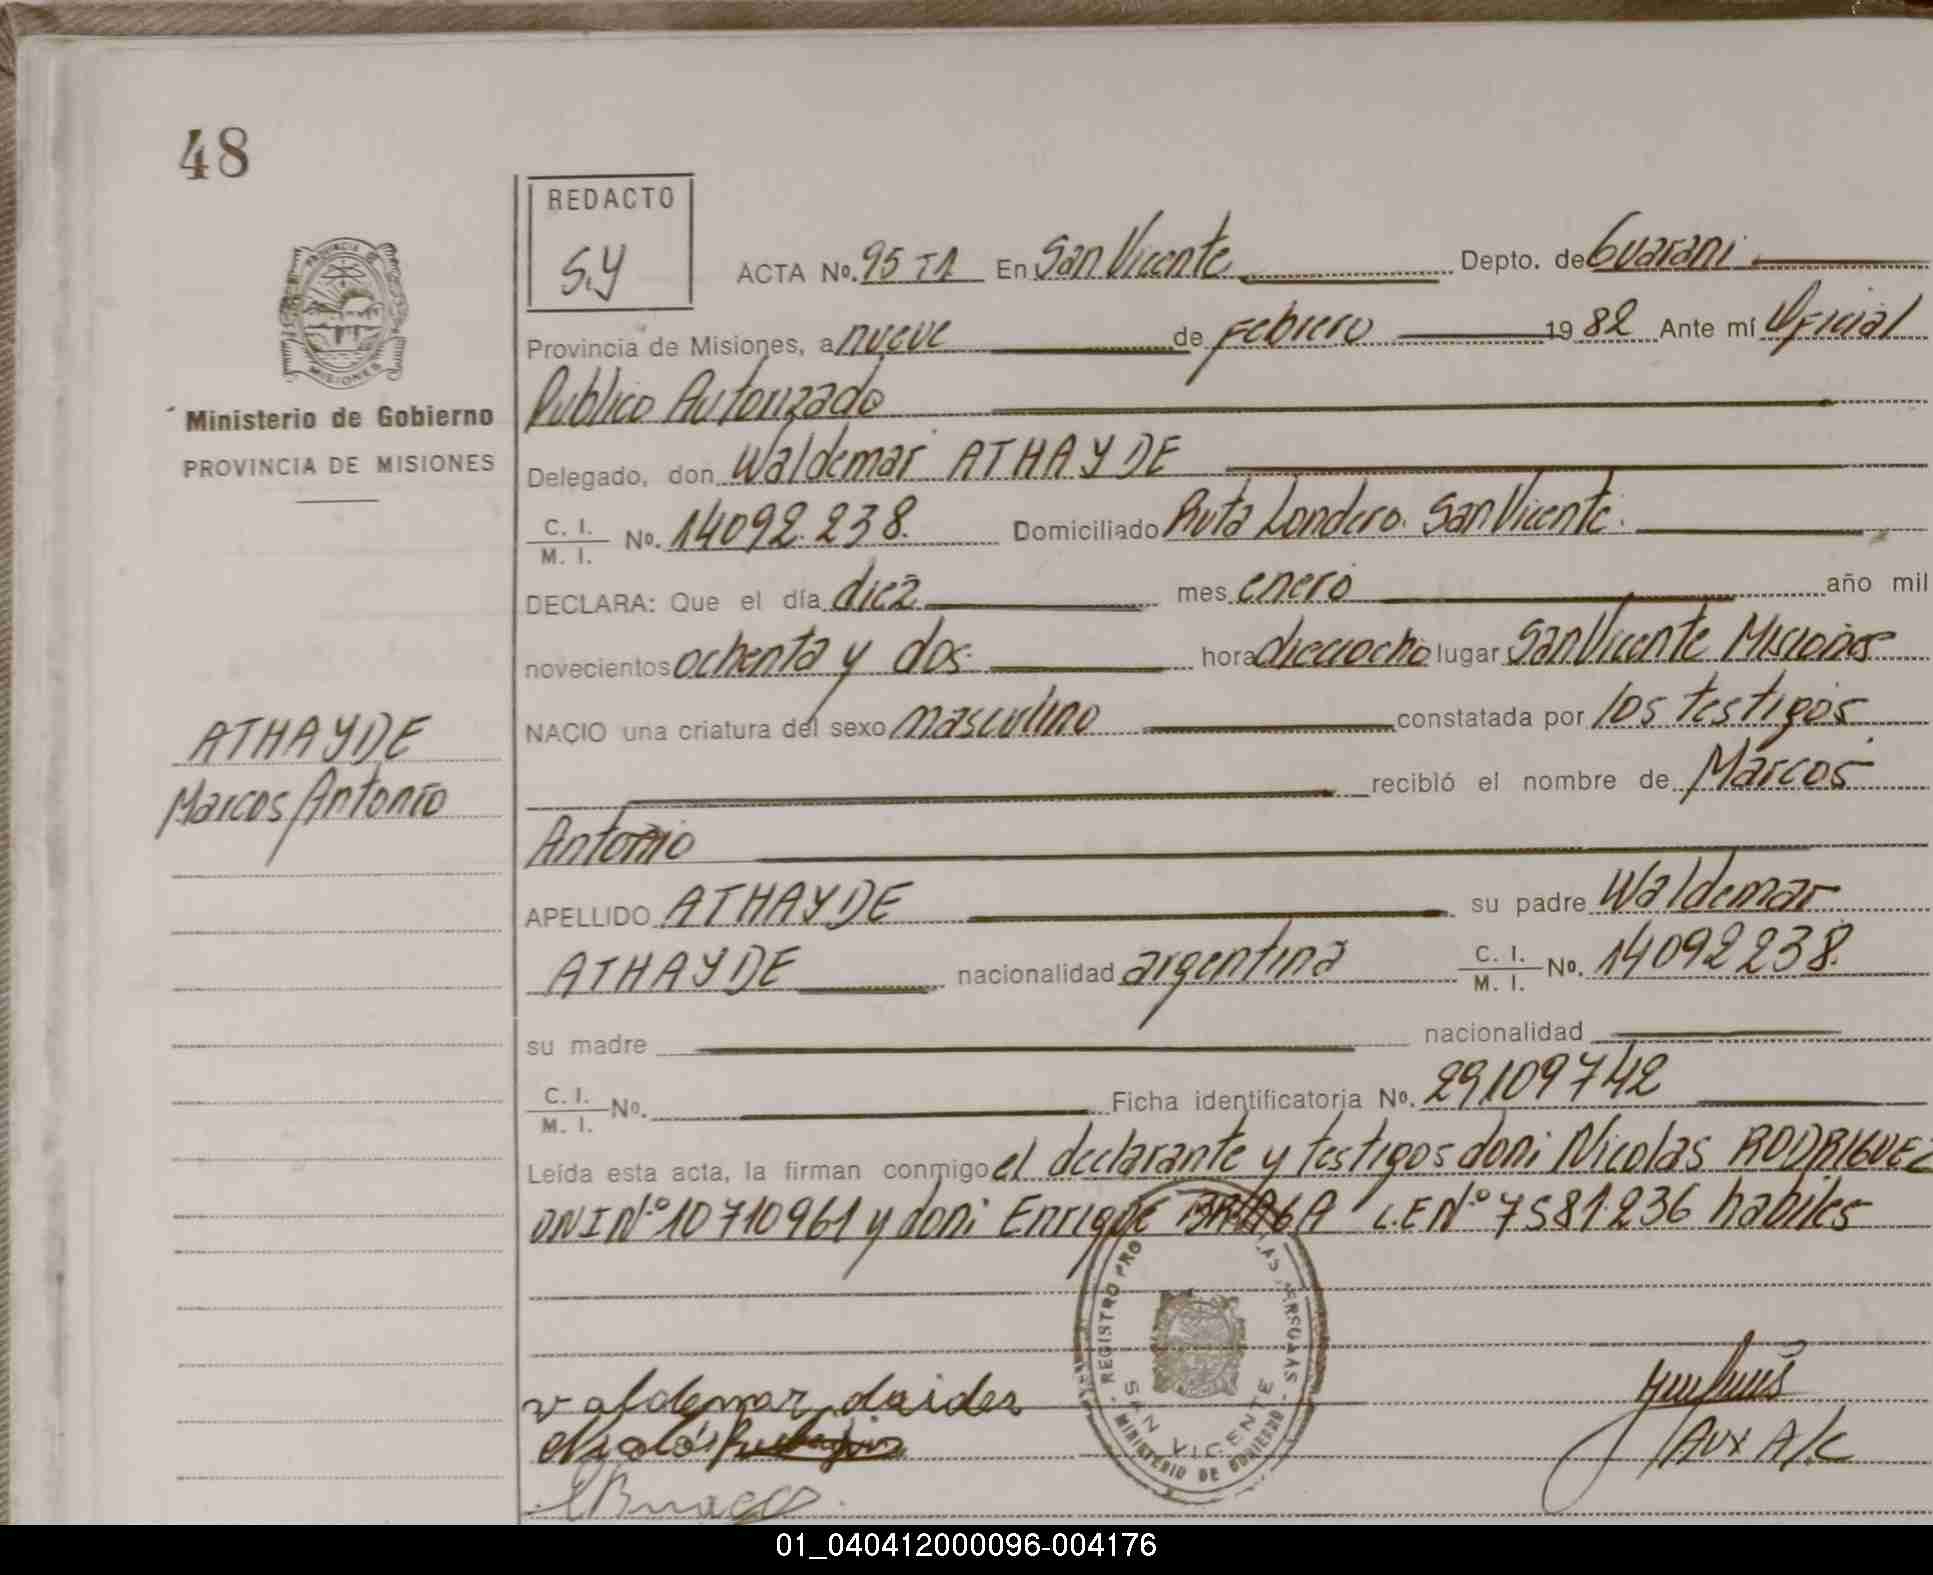 48
REDACTO
S.Y
ACTA No. 95 T1 En San Vicente Depto. de Guarani
Provincia de Misiones, a nueve de Febrero 1982 Ante mí Oficial
Publico Autorizado
Delegado, don Waldemar ATHAYDE
C. I.
M. I. No. 14092.238. Domiciliado Ruta Londero. San Vicente.
DECLARA: Que el día diez mes enero año mil
novecientos ochenta y dos hora dieciocho lugar San Vicente Misiones
NACIO una criatura del sexo masculino constatada por los testigos
recibió el nombre de Marcos
Antonio
APELLIDO ATHAYDE su padre Waldemar
ATHAYDE nacionalidad argentina C. I.
M. I. No. 14092238.
su madre nacionalidad
C. I.
M. I. No. Ficha identificatoria No. 29109742
Leída esta acta, la firman conmigo el declarante y testigos don: Nicolas RODRIGUEZ
DNI Nº 10710961 y don: Enrique BRAGA L.E Nº 7581.236 habiles
PROVINCIA DE
MISIONES
Ministerio de Gobierno
PROVINCIA DE MISIONES
ATHAYDE
Marcos Antonio
REGISTRO PRO LAS PERSONAS
SAN VICENTE
MINISTERIO DE GOBIERNO
Aux A/C
01_040412000096-004176